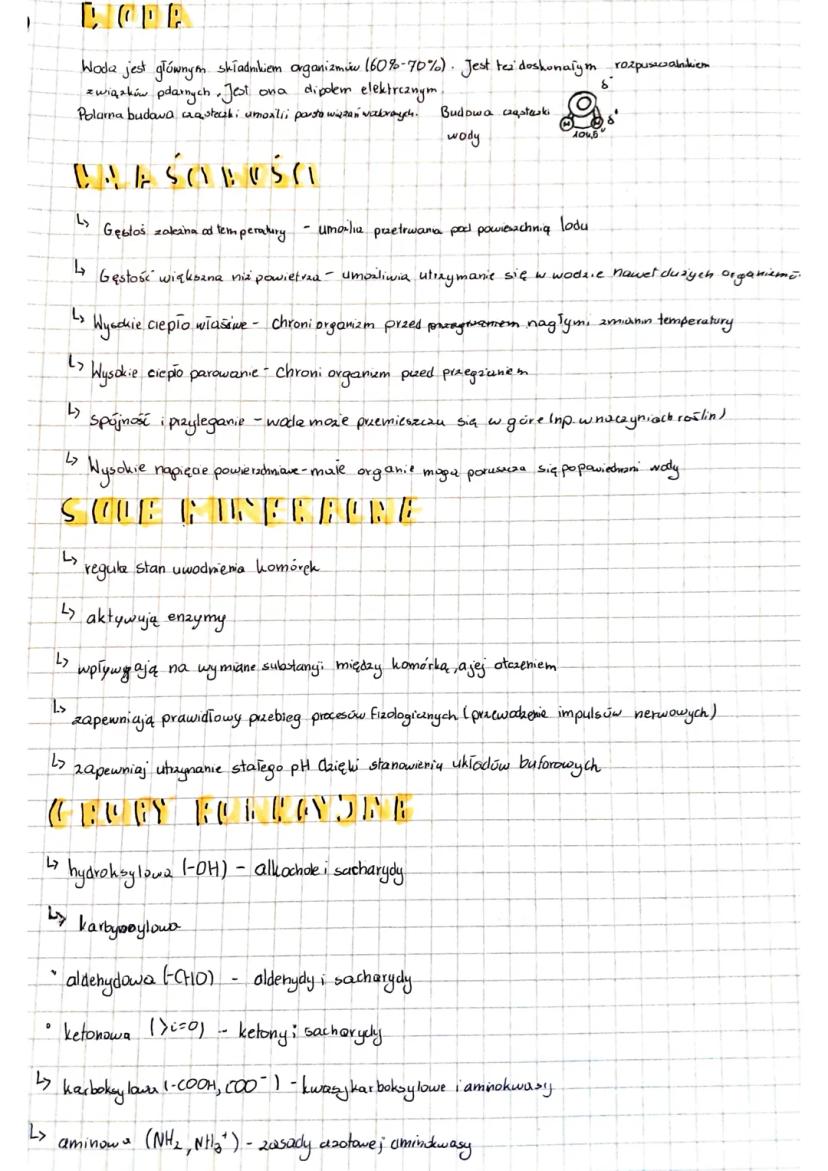 WODA
Woda jest głównym składnikiem organizmów (60%-70%). Jest też doskonałym rozpuszczalnikiem
związków polarnych. Jest ona dipolem elektrcznym.
δ-
Polarna budowa cząsteczki umożlii Budowa cząsteczki
wody
H H δ+
104,5°
WŁAŚCIWOŚCI
↳ Gęstoś zależna od temperatury - umożlia przetrwana pod powierzchnią lodu
↳ Gęstość większna niż powietrza - umożliwia utrzymanie się w wodzie nawet dużych organizmó
↳ Wysokie ciepło właściwe - chroni organizm przed nagłymi zmianin temperatury
↳ Wysokie ciepło parowanie - chroni organizm przed przegrzaniem
↳ spójność i przyleganie - woda może przemieszczać się w górę (np. w naczyniach roślin)
↳ Wysokie napięcie powierzchniowe - małe organie mogą porusza się po powiedzchni wody
SOLE MINERALNE
↳ regulue stan uwodnienia komórek
↳ aktywują enzymy
↳ wpływają na wymiane substancji między komórką, a jej otczeniem
↳ zapewniają prawidłowy przebieg procesów fizologicznych (przewodzenie impulsów nerwowych)
↳ zapewniaj utrzynanie stałego pH dzięki stanowieniu układów buforowych
GRUPY FUNKCYJNE
↳ hydroksylowa (-OH) - alkohole i sacharydy
↳ karbynoylowa
• aldehydowa (-CHO) - aldehydy i sacharydy
• ketonowa (>C=O) - ketony i sacharydy
↳ karboksylowa (-COOH, COO⁻) - kwasy karboksylowe i aminokwasy
↳ aminowa (NH₂, NH₃⁺) - zasady azotowej aminokwasy